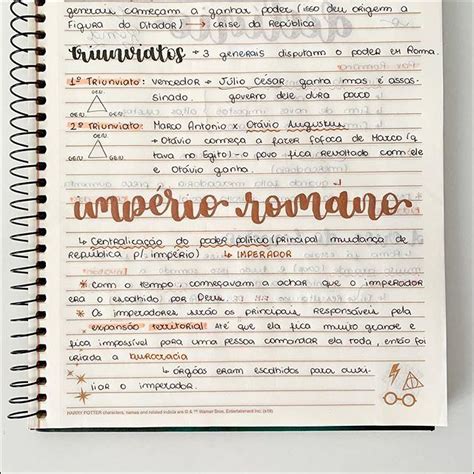 generais começam a ganhar poder (isso deu origem a
Figura do Ditador) → crise da República
triunviratos → 3 generais disputam o poder em Roma.
1º Triunviato: vencedor → Júlio César ganha mas é assas-
sinado. governo dele dura pouco
GEN.
GEN. GEN.
2º Triunviato: Marco Antonio x Otávio Augustus
GEN.
GEN. GEN.
→ Otávio começa a fazer fofoca de Marco (q
tava no Egito) → o povo fica revoltado com ele
e Otávio ganha.
império romano
↳ Centralicação do poder político (principal mudança de
república p/ império) ↳ IMPERADOR
* com o tempo, começavam a achar que o imperador
era o escolhido por Deus.
* Os imperadores serão os principais responsáveis pela
expansão territorial até que ela fica muito grande e
fica impossível para uma pessoa comandar ela toda, então foi
criada a burocracia
↳ órgãos eram escolhidos para auxi-
liar o imperador.
HARRY POTTER characters, names and related indicia are © & ™ Warner Bros. Entertainment Inc. (s18)